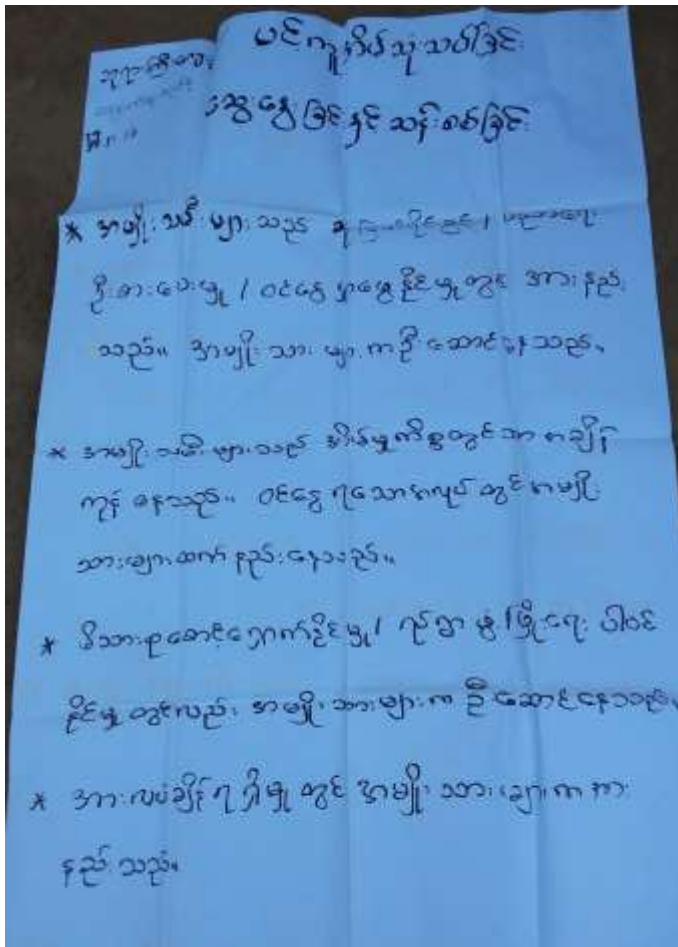 ဘုရားကြီးလေး
ပင်ကူအိမ်သုံးသပ်ခြင်း
ဆွေးနွေးခြင်းနှင့် ဆန်းစစ်ခြင်း
* အမျိုးသမီးများသည်
ဦးစားပေးမှု / ဝင်ငွေ ရှာဖွေနိုင်မှုတွင် အားနည်း
သည်။ အမျိုးသားများကဦးဆောင်နေသည်။
* အမျိုးသမီးများသည် အိမ်မှုကိစ္စတွင်သာ အချိန်
ကုန်နေသည်။ ဝင်ငွေရသောအလုပ်တွင် အမျိုး
သားများထက် နည်းနေသည်။
* မိသားစုစောင့်ရှောက်နိုင်မှု / ရပ်ရွာဖွံ့ဖြိုးရေး ပါဝင်
နိုင်မှုတွင်လည်း အမျိုးသားများက ဦးဆောင်နေသည်။
* အားလပ်ချိန်ရရှိမှုတွင် အမျိုးသားများက အား
နည်းသည်။